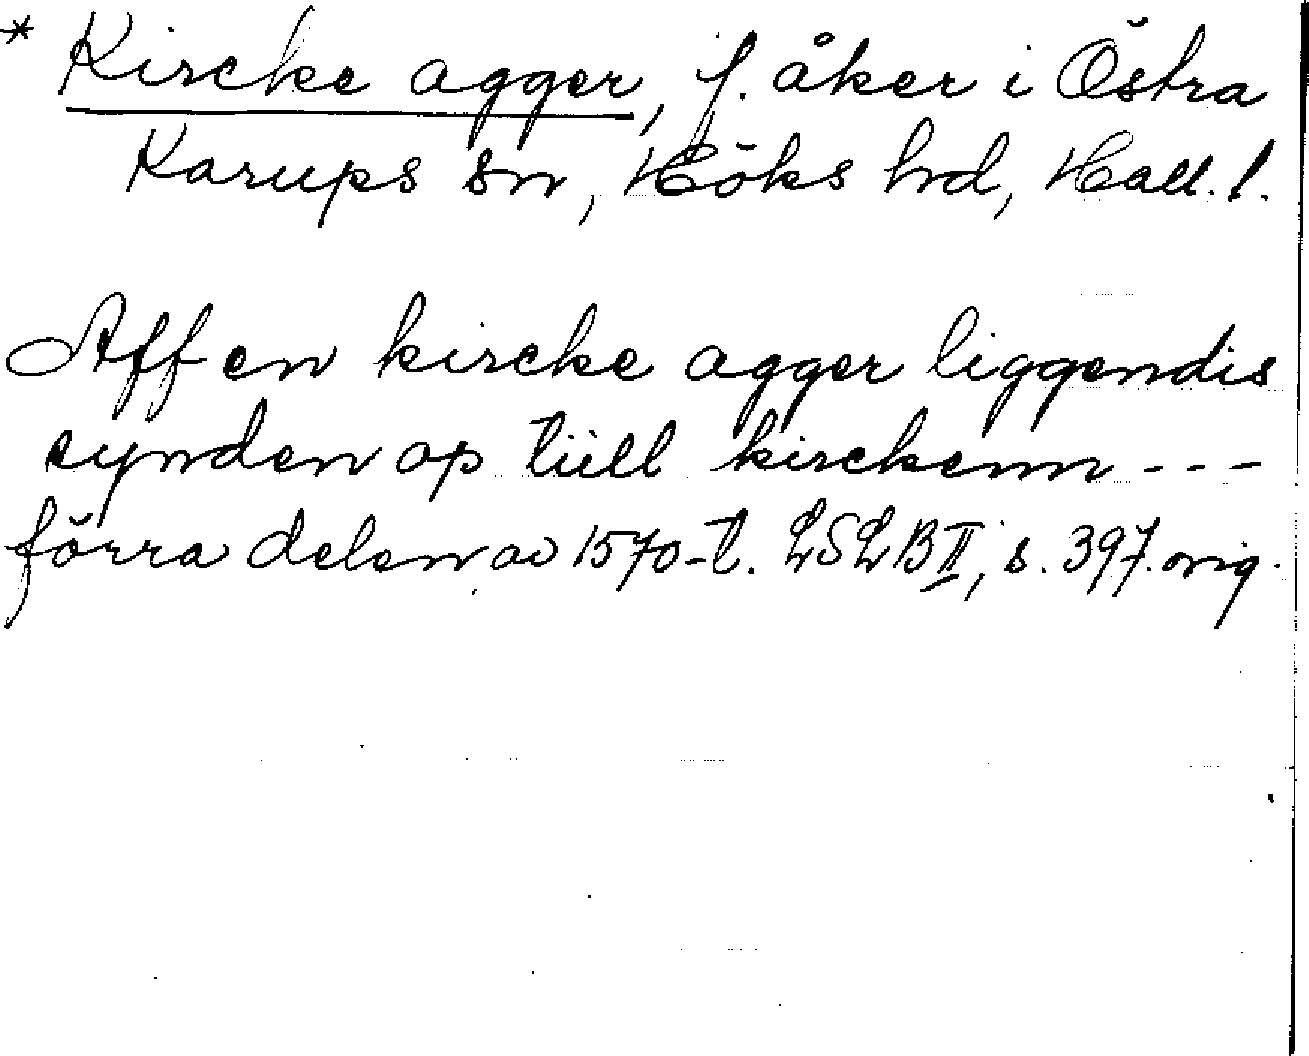 * Kircke agger, f. åker i Östra
Karups sn, Höks hd, Hall. l.
Aff en kircke agger liggendis
synden op tiill kirckenn ---
förra delen av 1570-t. LSLB II, s. 397. orig.